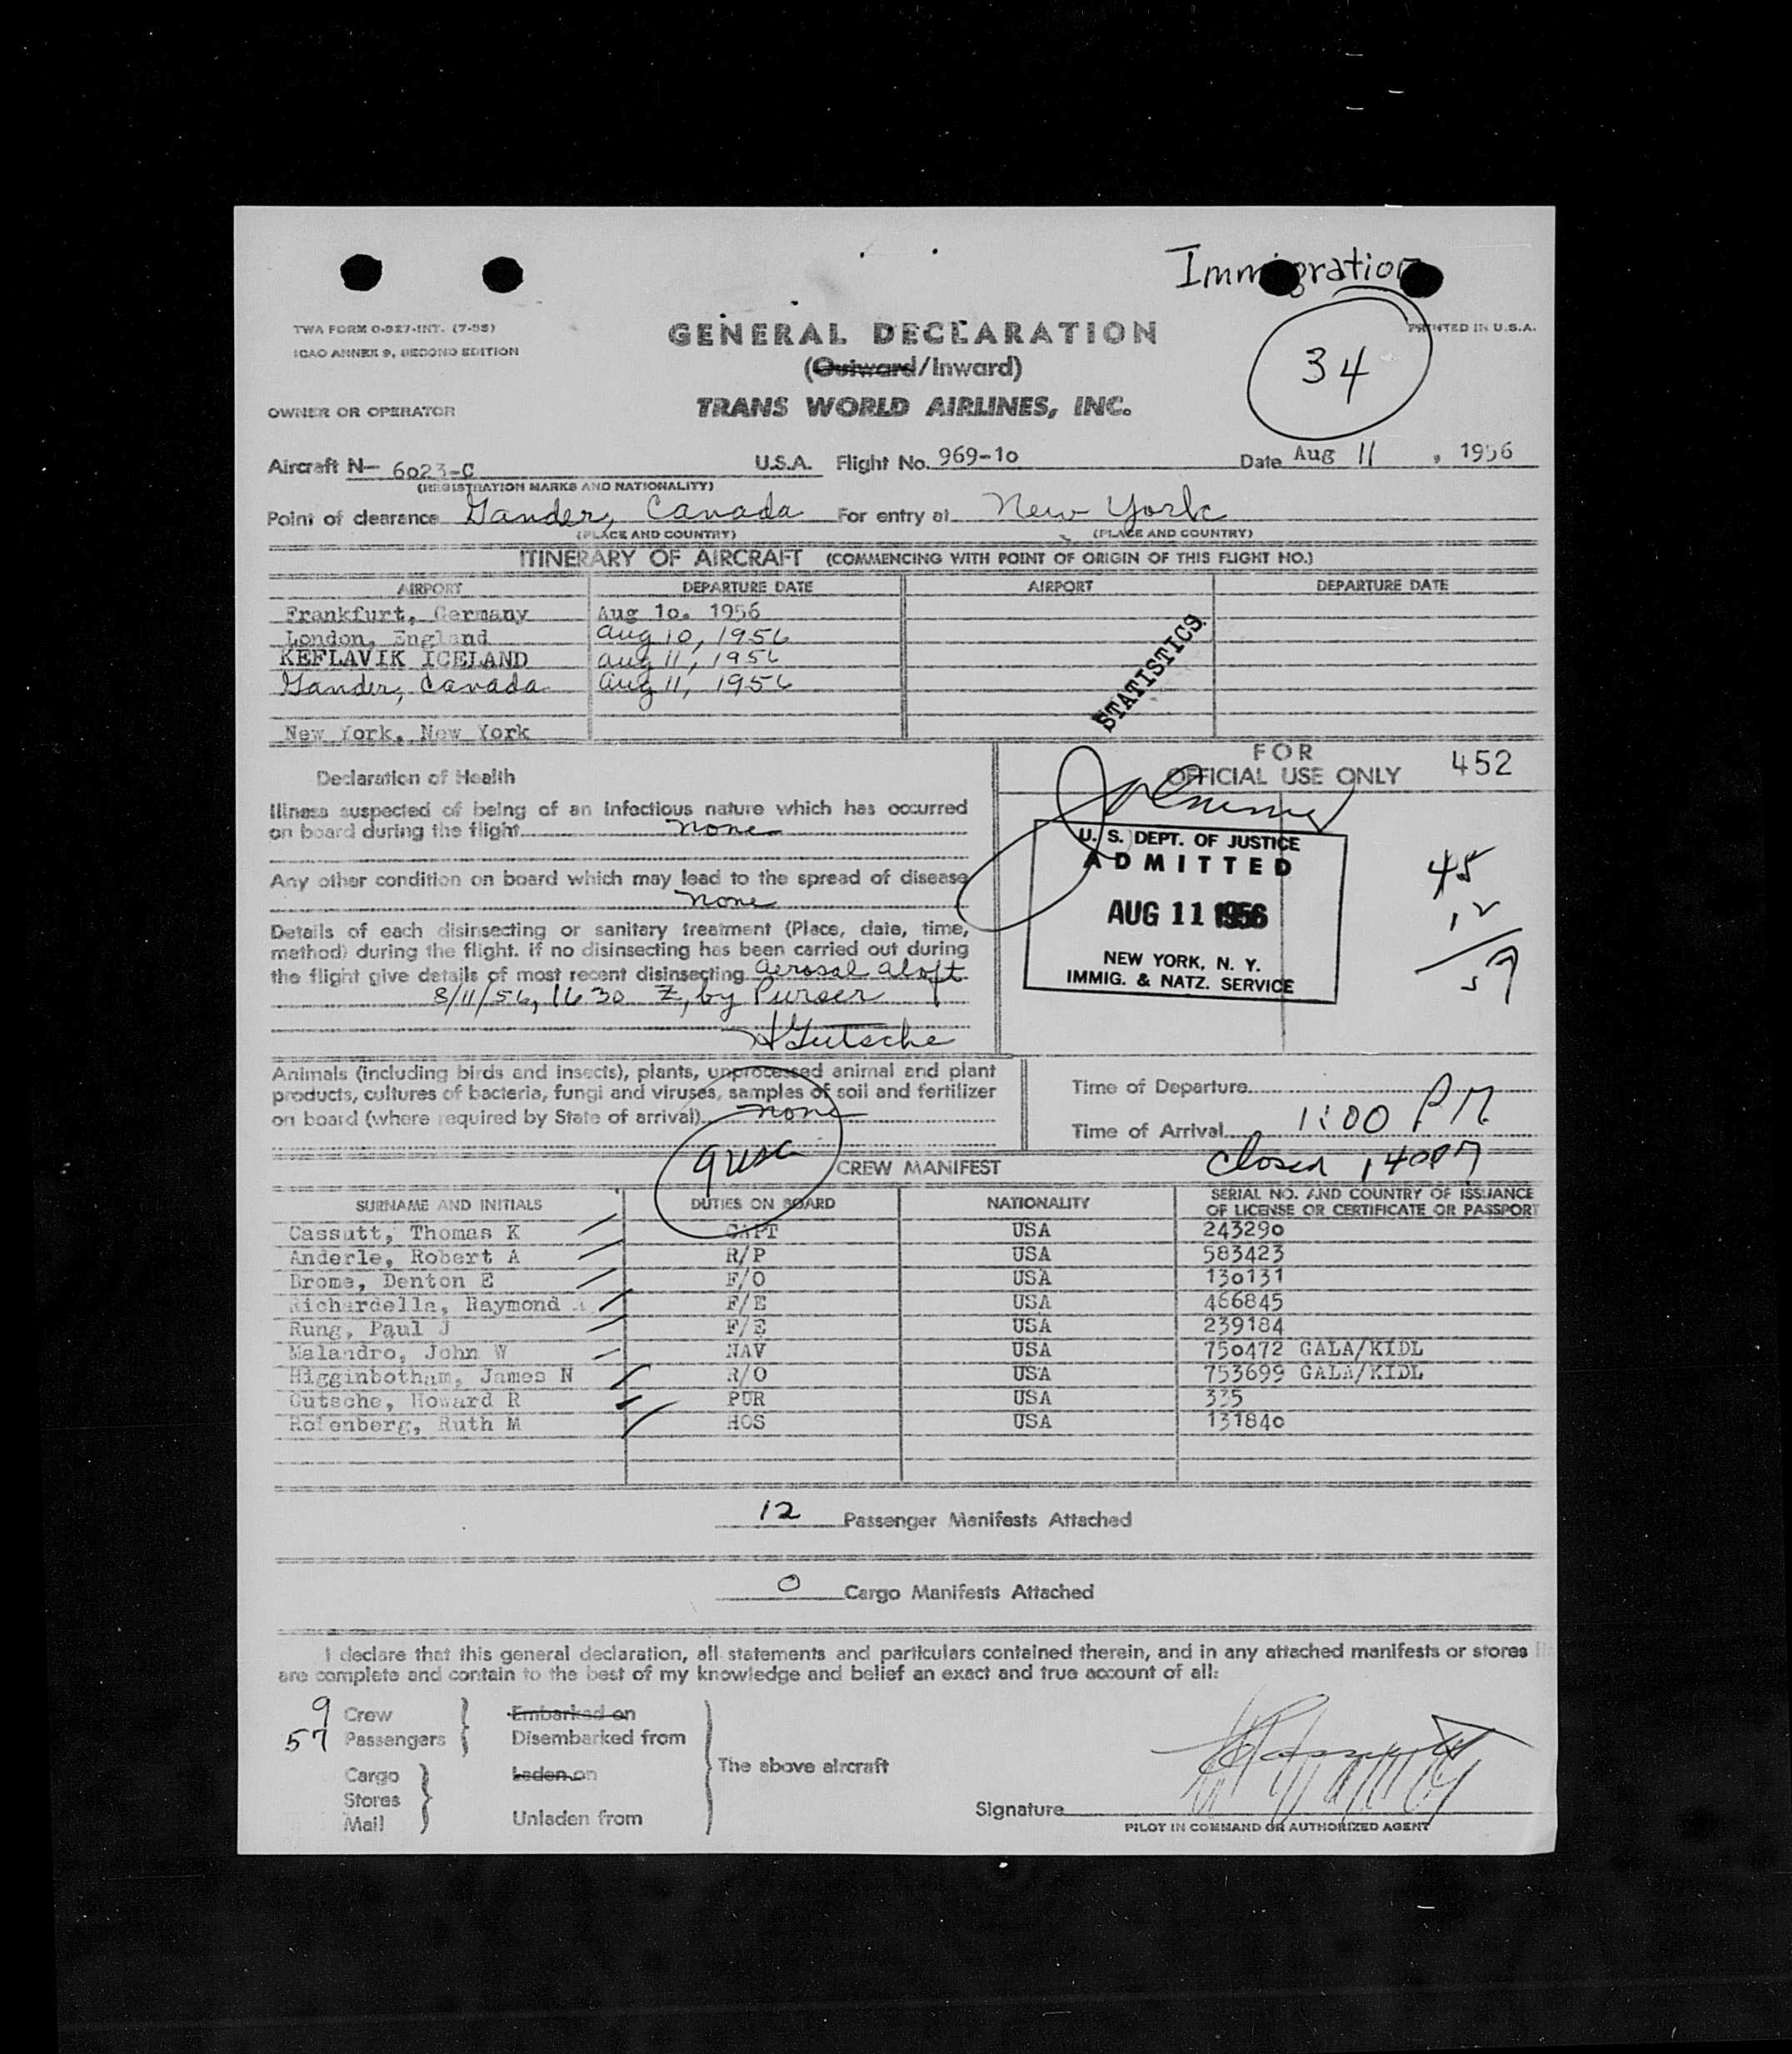 Immigration
TWA FORM O-927-INT. (7-55)
ICAO ANNEX 9, SECOND EDITION
GENERAL DECLARATION
PRINTED IN U.S.A.
(Outward/Inward)
34
OWNER OR OPERATOR
TRANS WORLD AIRLINES, INC.
Aircraft N- 6023-C U.S.A. Flight No. 969-10 Date Aug 11, 1956
(REGISTRATION MARKS AND NATIONALITY)
Point of clearance Gander, Canada For entry at New York
(PLACE AND COUNTRY) (PLACE AND COUNTRY)
ITINERARY OF AIRCRAFT (COMMENCING WITH POINT OF ORIGIN OF THIS FLIGHT NO.)
AIRPORT DEPARTURE DATE AIRPORT DEPARTURE DATE
Frankfurt, Germany Aug 10. 1956
London, England Aug 10, 1956
KEFLAVIK ICELAND Aug 11, 1956
Gander, Canada Aug 11, 1956
STATISTICS
New York, New York
FOR
OFFICIAL USE ONLY 452
Declaration of Health
Illness suspected of being of an infectious nature which has occurred
on board during the flight none
Any other condition on board which may lead to the spread of disease
none
Details of each disinsecting or sanitary treatment (Place, date, time,
method) during the flight. if no disinsecting has been carried out during
the flight give details of most recent disinsecting Aerosal aloft
8/11/56, 1630 Z, by Purser
H Gutsche
U. S. DEPT. OF JUSTICE
ADMITTED
AUG 11 1956
NEW YORK, N. Y.
IMMIG. & NATZ. SERVICE
45
12
57
Animals (including birds and insects), plants, unprocessed animal and plant
products, cultures of bacteria, fungi and viruses, samples of soil and fertilizer
on board (where required by State of arrival) none
Time of Departure
Time of Arrival 1:00 PM
Closed 140PM
9 USC
CREW MANIFEST
SURNAME AND INITIALS DUTIES ON BOARD NATIONALITY SERIAL NO. AND COUNTRY OF ISSUANCE
OF LICENSE OR CERTIFICATE OR PASSPORT
Cassutt, Thomas K CAPT USA 243290
Anderle, Robert A R/P USA 583423
Brome, Denton E F/O USA 130131
Richardella, Raymond F/E USA 466845
Rung, Paul J F/E USA 239184
Malandro, John W NAV USA 750472 GALA/KIDL
Higginbotham, James N R/O USA 753699 GALA/KIDL
Gutsche, Howard R PUR USA 335
Rofenberg, Ruth M HOS USA 131840
12 Passenger Manifests Attached
0 Cargo Manifests Attached
I declare that this general declaration, all statements and particulars contained therein, and in any attached manifests or stores
are complete and contain to the best of my knowledge and belief an exact and true account of all:
9 Crew Embarked on
57 Passengers Disembarked from
The above aircraft
Cargo Laden on
Stores
Mail Unladen from
Signature
PILOT IN COMMAND OR AUTHORIZED AGENT